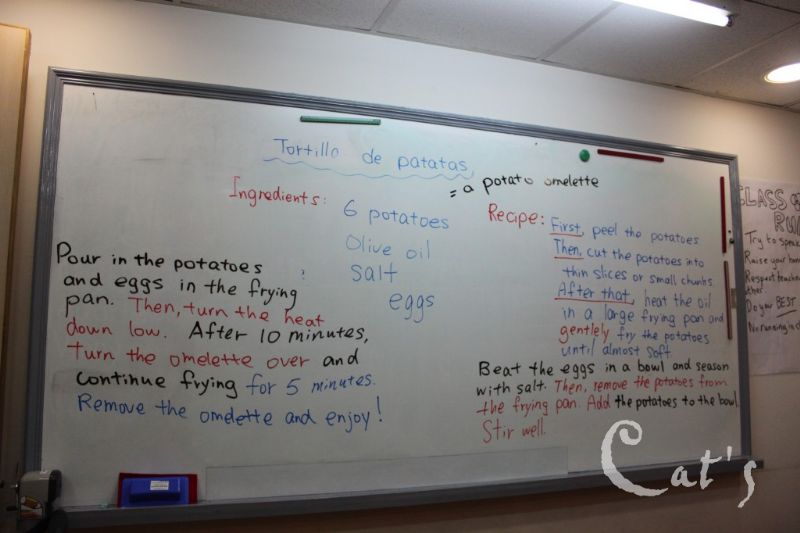 Tortillo de patatas
= a potato omelette
Ingredients:
6 potatoes
Olive oil
salt
eggs
Recipe: First, peel the potatoes
Then, cut the potatoes into
thin slices or small chunks.
After that, heat the oil
in a large frying pan and
gentlely fry the potatoes
until almost soft
Beat the eggs in a bowl and season
with salt. Then, remove the potatoes from
the frying pan. Add the potatoes to the bowl.
Stir well.
Pour in the potatoes
and eggs in the frying
pan. Then, turn the heat
down low. After 10 minutes,
turn the omelette over and
continue frying for 5 minutes.
Remove the omelette and enjoy!
CLASS
Try to speak
Raise your
Respect
Do your BEST
No running in
Cat's